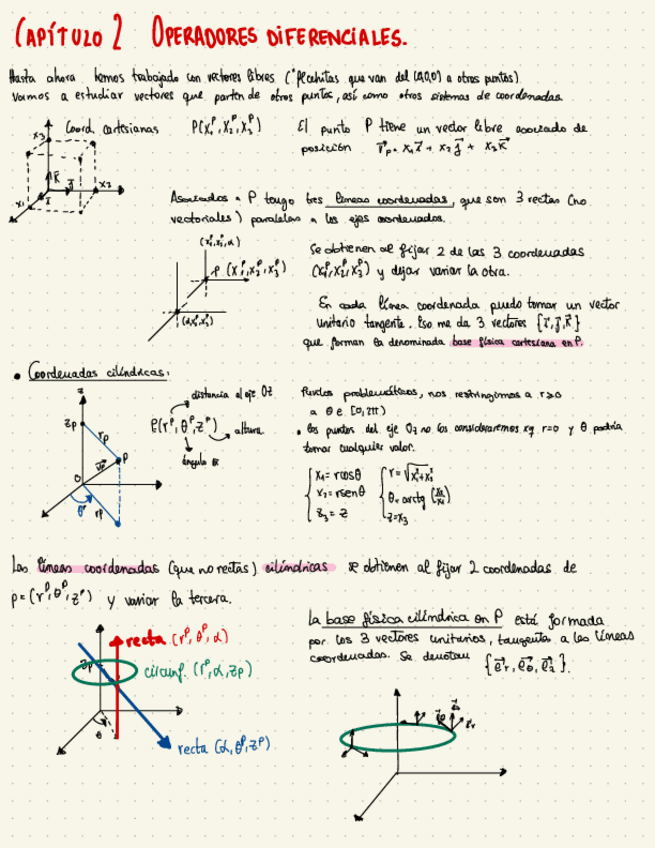 CAPÍTULO 2 OPERADORES DIFERENCIALES.
Hasta ahora hemos trabajado con vectores libres ("flechitas que van del (0,0,0) a otros puntos)
Vamos a estudiar vectores que parten de otros puntos, así como otros sistemas de coordenadas.
Coord cartesianas P(x₁ᴾ, x₂ᴾ, x₃ᴾ) El punto P tiene un vector libre asociado de
posición r⃗p = x₁i⃗ + x₂j⃗ + x₃k⃗
x₃
k⃗
j⃗
x₂
x₁
i⃗
Asociadas a P tengo tres líneas coordenadas, que son 3 rectas (no
vectoriales) paralelas a los ejes coordenados.
(x₁ᴾ, x₂ᴾ, α)
P (x₁ᴾ, x₂ᴾ, x₃ᴾ)
(α, x₂ᴾ, x₃ᴾ)
Se obtienen al fijar 2 de las 3 coordenadas
(x₁ᴾ, x₂ᴾ, x₃ᴾ) y dejar variar la otra.
En cada línea coordenada puedo tomar un vector
unitario tangente. Eso me da 3 vectores {i⃗, j⃗, k⃗}
que forman la denominada base física cartesiana en P.
• Coordenadas cilíndricas:
z
zp
rp
P
O
θᴾ
rp
distancia al eje Oz
P(rᴾ, θᴾ, zᴾ) altura
ángulo
Puntos problemáticos, nos restringimos a r>0
a θ ∈ [0, 2π)
• los puntos del eje Oz no los consideraremos xq r=0 y θ podría
tomar cualquier valor.
x₁ = r cosθ r = √x₁²+x₂²
x₂ = r senθ θ = arctg (x₂/x₁)
x₃ = z z = x₃
Las líneas coordenadas (que no rectas) cilíndricas se obtienen al fijar 2 coordenadas de
p = (rᴾ, θᴾ, zᴾ) y variar la tercera.
recta (rᴾ, θᴾ, α)
zp
circunf. (rᴾ, α, zp)
θ
recta (α, θᴾ, zᴾ)
La base física cilíndrica en P está formada
por los 3 vectores unitarios, tangentes a las líneas
coordenadas. Se denotan {e⃗r, e⃗θ, e⃗z}.
e⃗θ e⃗z
e⃗r